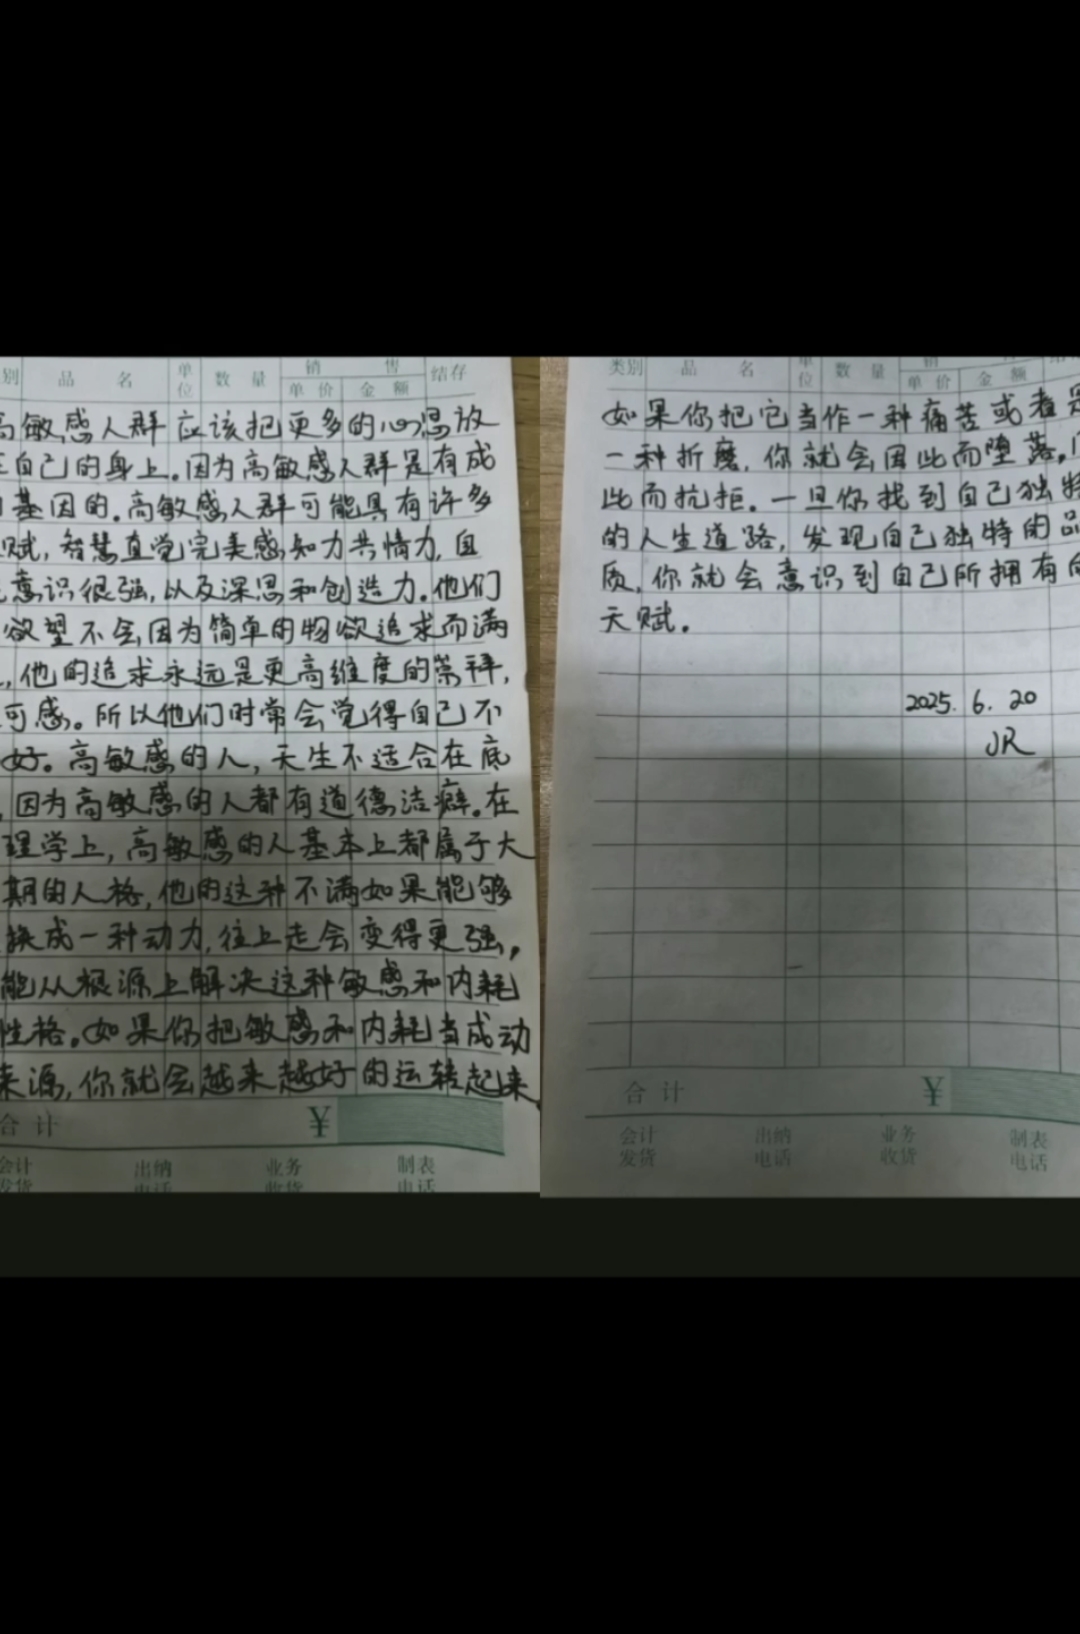 别 品 名 单位 数 量 销 售 结存
单 价 金 额
高敏感人群应该把更多的心思放
在自己的身上。因为高敏感人群是有成
基因的。高敏感人群可能具有许多
赋,智慧直觉完美感知力共情力,自
意识很强,以及深思和创造力。他们
欲望不会因为简单的物欲追求而满
,他的追求永远是更高维度的崇拜,
可感。所以他们时常会觉得自己不
好。高敏感的人,天生不适合在底
,因为高敏感的人都有道德洁癖。在
理学上,高敏感的人基本上都属于大
期的人格,他的这种不满如果能够
换成一种动力,往上走会变得更强,
能从根源上解决这种敏感和内耗
性格。如果你把敏感和内耗当成动
来源,你就会越来越好的运转起来
合 计 ¥
会计 出纳 业务 制表
发货 电话 收货 电话
类别 品 名 单位 数 量 销
单 价 金 额
如果你把它当作一种痛苦或者是
一种折磨,你就会因此而堕落。
此而抗拒。一旦你找到自己独特
的人生道路,发现自己独特的品
质,你就会意识到自己所拥有的
天赋。
2025. 6. 20
JR
合 计 ¥
会计 出纳 业务 制表
发货 电话 收货 电话